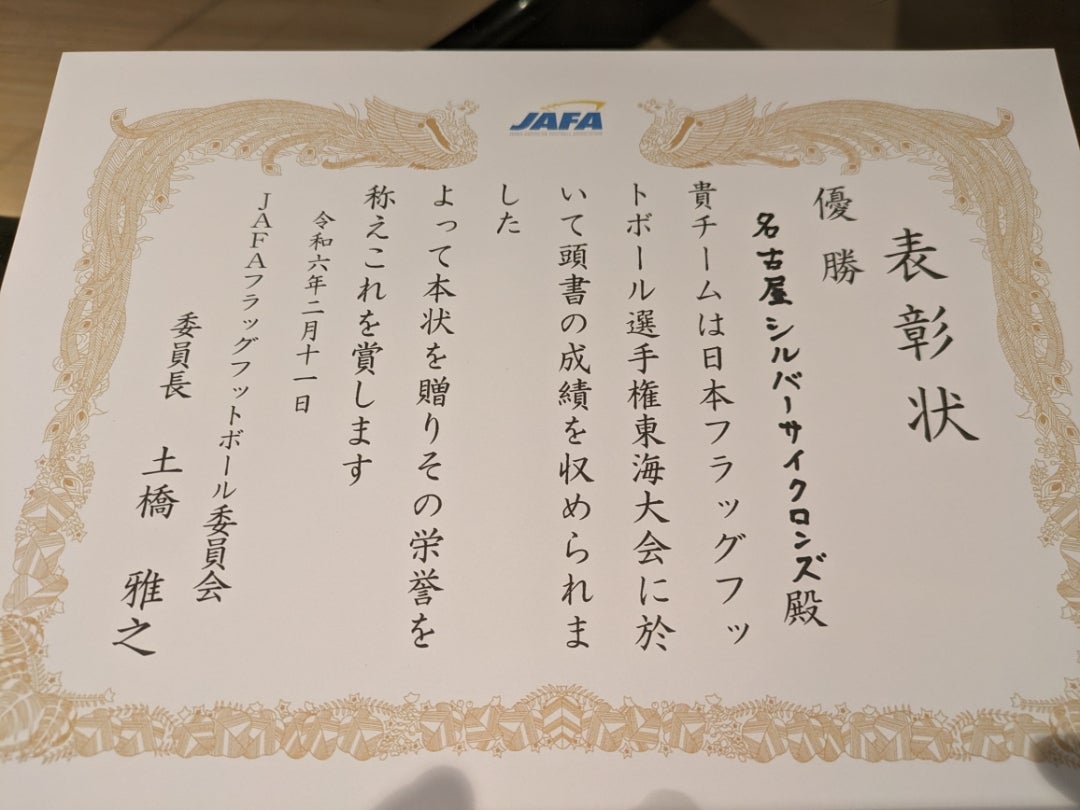 JAFA
表彰状
優勝
名古屋シルバーサイクロンズ殿
貴チームは日本フラッグフッ
トボール選手権東海大会に於
いて頭書の成績を収められま
した
よって本状を贈りその栄誉を
称えこれを賞します
令和六年二月十一日
JAFAフラッグフットボール委員会
委員長 土橋 雅之